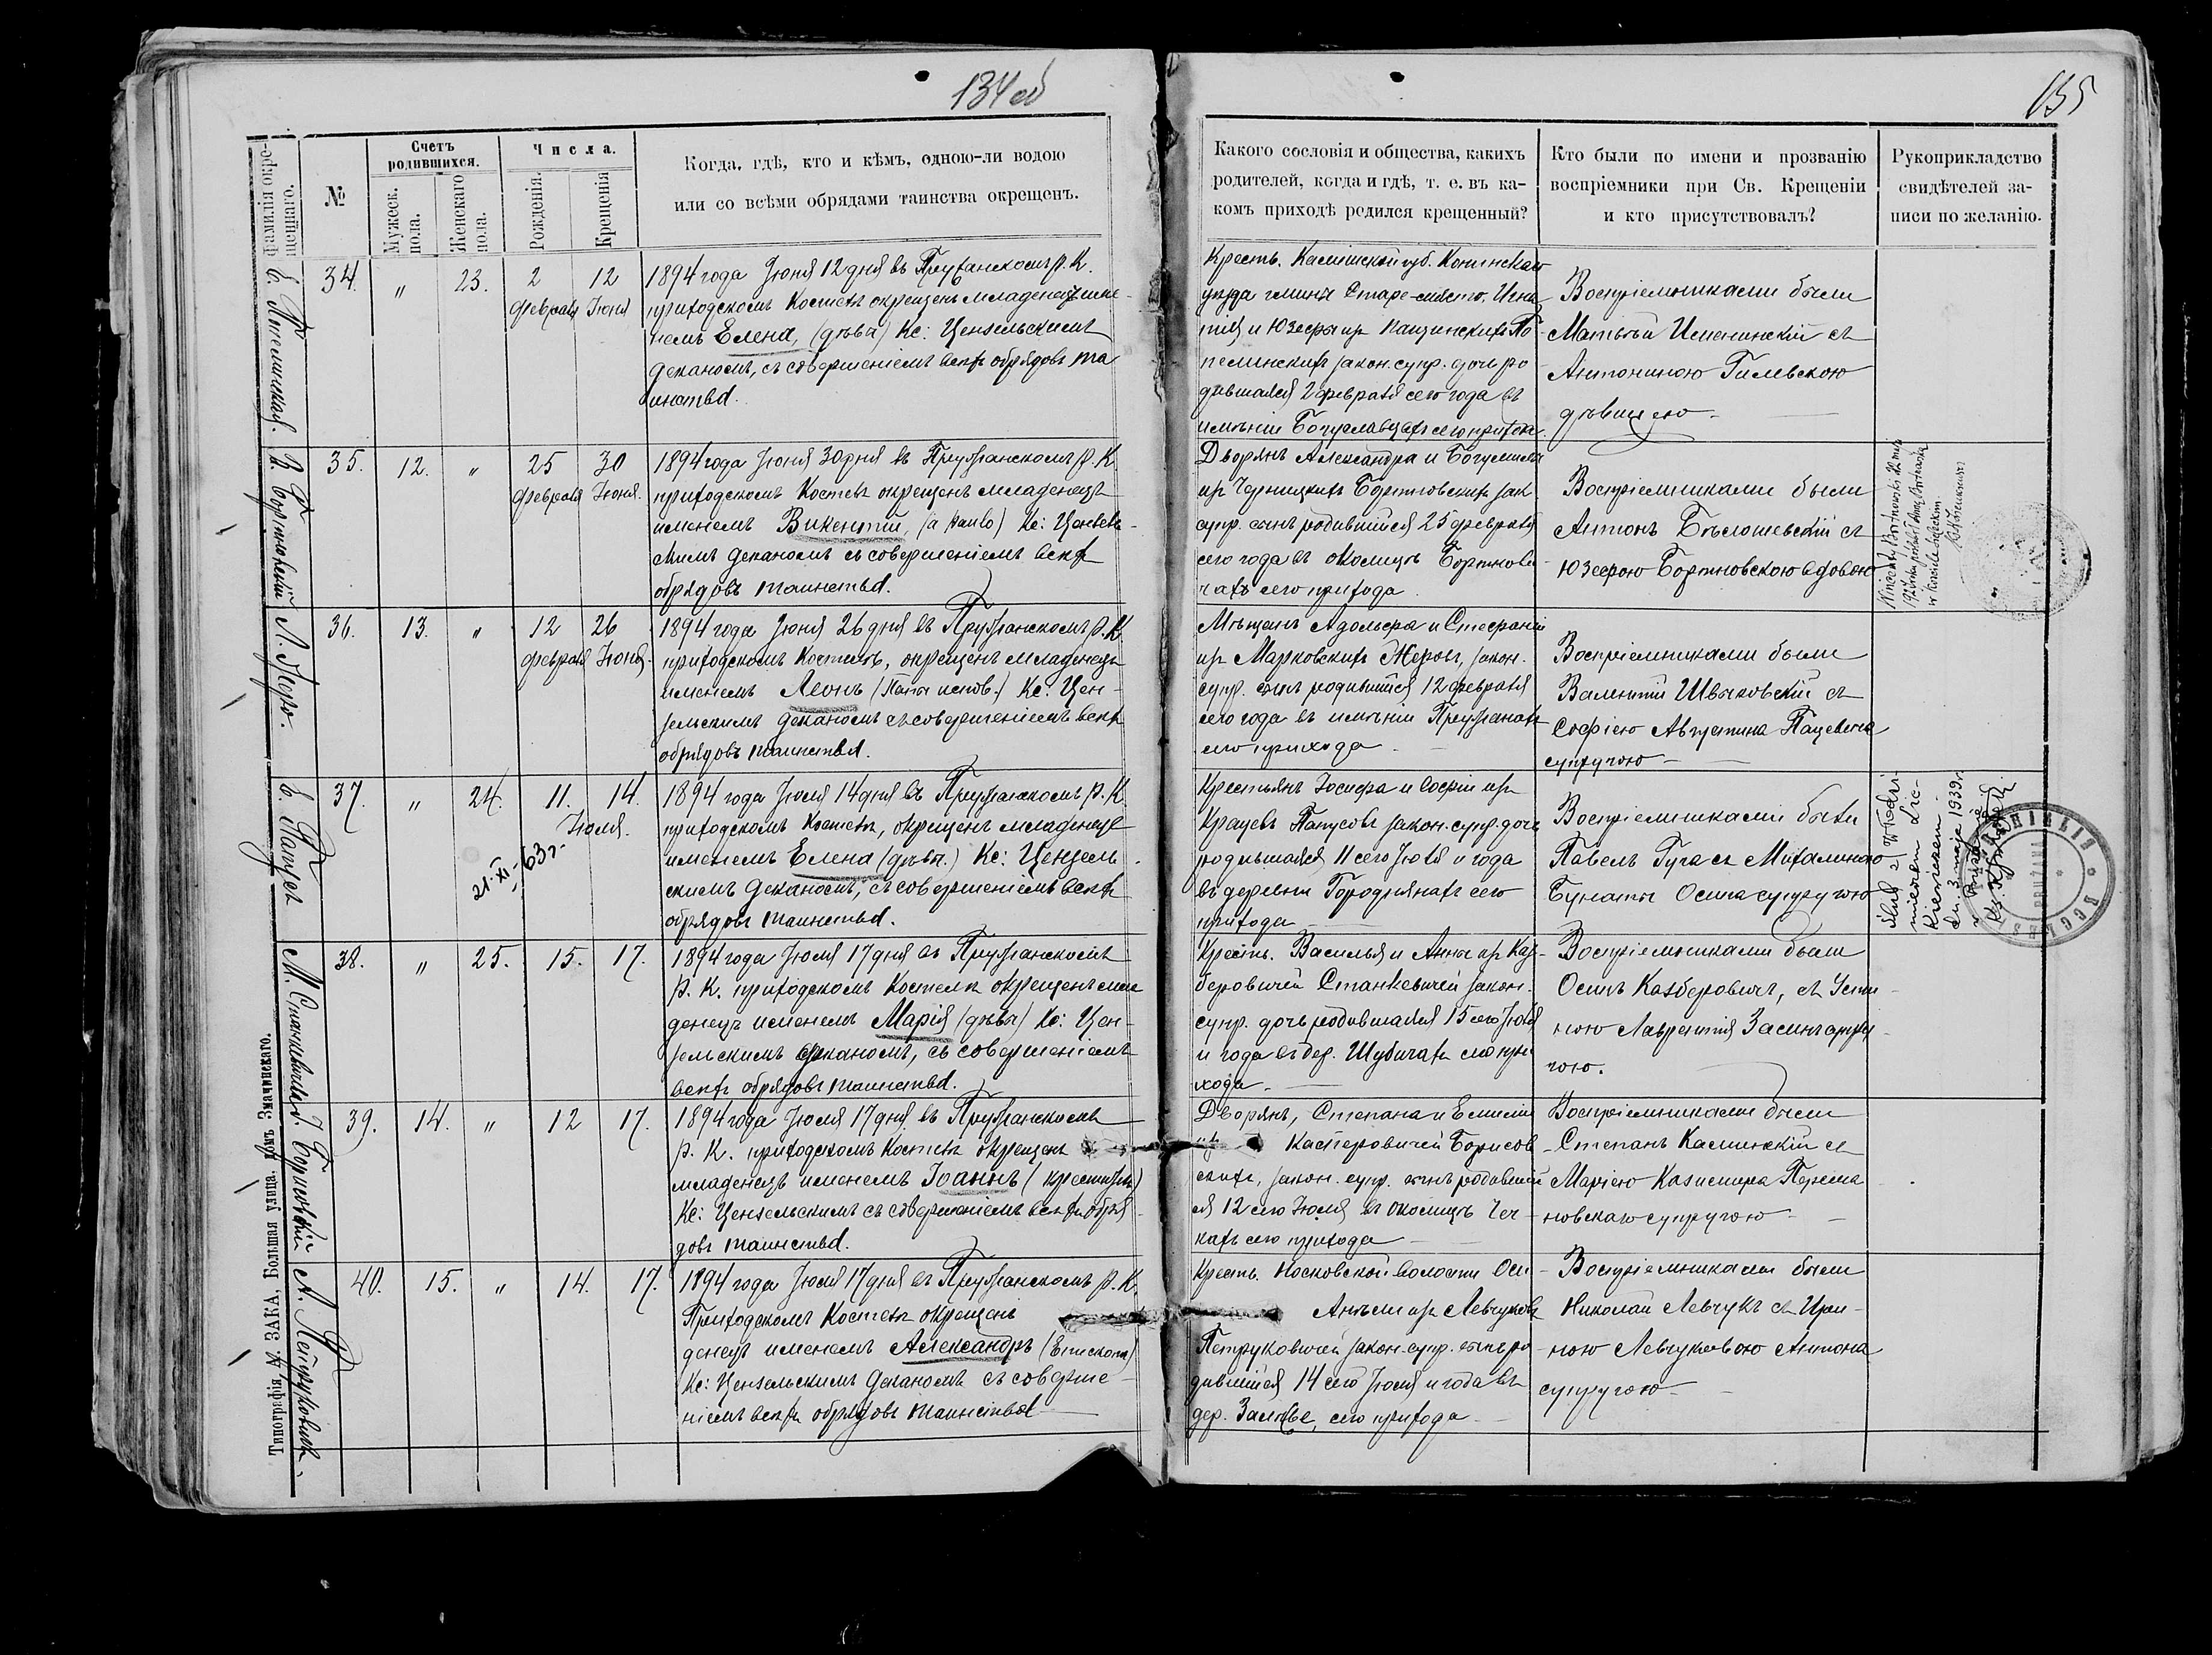 134 об
135
Фамилія окре-
щеннаго.
№
Счетъ
родившихся.
Мужеск.
пола.
Женскаго
пола.
Числа.
Рожденія.
Крещенія
Когда, гдѣ, кто и кѣмъ, одною-ли водою
или со всѣми обрядами таинства окрещенъ.
Какого сословія и общества, какихъ
родителей, когда и гдѣ, т. е. въ ка-
комъ приходѣ родился крещенный?
Кто были по имени и прозванію
воспріемники при Св. Крещеніи
и кто присутствовалъ?
Рукоприкладство
свидѣтелей за-
писи по желанію.
34. " 23. 2 12
февраля Іюня
1894 года Іюня 12 дня въ Пружанскомъ Р. К.
приходскомъ Костелѣ окрещенъ младенецъ име-
немъ Елена, (дѣвы) Кс: Цензельскимъ
деканомъ, съ совершеніемъ всѣхъ обрядовъ та
инства.
Крестъ. Калишской губ. Конинскаго
уѣзда гмины Старе-място, Игна
тія и Юзефы изъ
закон. супр. дочь ро
дившаяся 2 февраля сего года въ
имѣніи Богуславцахъ сего прихода.
Воспріемниками были
Матвѣй съ
Антониною Гилевскою
дѣвицею
Б. Бортновскій
35. 12. " 25 30
февраля Іюня.
1894 года Іюня 30 дня въ Пружанскомъ Р. К.
приходскомъ Костелѣ окрещенъ младенецъ
именемъ Викентій, (а Paulo) Кс: Цензель-
скимъ деканомъ съ совершеніемъ всѣхъ
обрядовъ таинства.
Дворянъ Александра и Богумилы
изъ Черницкихъ Бортновскихъ зак.
супр. сынъ родившійся 25 февраля
сего года въ околицѣ Бортнови
чахъ сего прихода.
Воспріемниками были
Антонъ Бѣлошевскій съ
Юзефою Бортновскою вдовою
Wincenty Bortnowski 22 maja
Л. Жеро.
36. 13. " 12 26
февраля Іюня.
1894 года Іюня 26 дня въ Пружанскомъ Р. К.
приходскомъ Костелѣ, окрещенъ младенецъ
именемъ Леонъ (Папы испов.) Кс: Цен-
зельскимъ деканомъ съ совершеніемъ всѣхъ
обрядовъ таинства.
Мѣщанъ Адольфа и Стефаніи
изъ Марковскихъ Жеровъ, закон.
супр. сынъ родившійся 12 февраля
сего года въ имѣніи Пружанахъ
сего прихода
Воспріемниками были
Валентій Швыковскій съ
Софіею Августина Пацевича
супругою
Е. Папусъ
37. " 24. 11. 14.
Іюля.
21-XI-63 г.
1894 года Іюля 14 дня въ Пружанскомъ Р. К.
приходскомъ Костелѣ, окрещенъ младенецъ
именемъ Елена (дѣвы.) Кс: Цензель
скимъ деканомъ, съ совершеніемъ всѣхъ
обрядовъ таинства.
Крестьянъ Іосифа и Софіи изъ
Папусовъ закон. супр. дочь
родившаяся 11 сего Іюля и года
въ деревни Городнянахъ сего
прихода
Воспріемниками были
Павелъ Гуга съ Михалиною
Осипа супругою
Ślub z Włodzi-
mierzem
dn. 3 maja 1939 r.
М. Станкевичъ.
38. " 25. 15. 17.
1894 года Іюля 17 дня въ Пружанскомъ
Р. К. приходскомъ Костелѣ окрещенъ мла
денецъ именемъ Марія (дѣвы) Кс: Цен-
зельскимъ деканомъ, съ совершеніемъ
всѣхъ обрядовъ таинства.
Крестъ. Василья и Анны изъ Каз-
беровичей Станкевичей закон.
супр. дочь родившаяся 15 сего Іюля
и года въ дер. Шубичахъ сего при
хода.
Воспріемниками были
Осипъ Казберовичъ, съ Усти-
ною Лаврентія супру-
гою.
І. Борисовскій
39. 14. " 12 17.
1894 года Іюля 17 дня въ Пружанскомъ
Р. К. приходскомъ Костелѣ окрещенъ
младенецъ именемъ Іоаннъ (крестителя)
Кс: Цензельскимъ съ совершеніемъ всѣхъ обря
довъ таинства.
Дворянъ, Степана и Емиліи
изъ Касперовичей Борисов
скихъ, закон. супр. сынъ родивший
ся 12 сего Іюля въ околицѣ Чеч-
кахъ сего прихода
Воспріемниками были
Степанъ Калинскій съ
Маріею Казимира
супругою
А. Петруковичъ.
40. 15. " 14. 17.
1894 года Іюля 17 дня въ Пружанскомъ Р. К.
Приходскомъ Костелѣ окрещенъ
денецъ именемъ Александръ (Епископа)
Кс: Цензельскимъ деканомъ съ соверше-
ніемъ всѣхъ обрядовъ таинства
Крестъ. Носковской волости Оси-
Анѣли изъ Левчуковъ
Петруковичей закон. супр. сынъ ро
дившійся 14 сего Іюля и года въ
дер. Залѣсье, сего прихода
Воспріемниками были
Николай Левчукъ съ Ири-
ною Левчуковою Антона
супругою
Типографія М. ЗАКА, Большая улица, домъ Значинскаго.